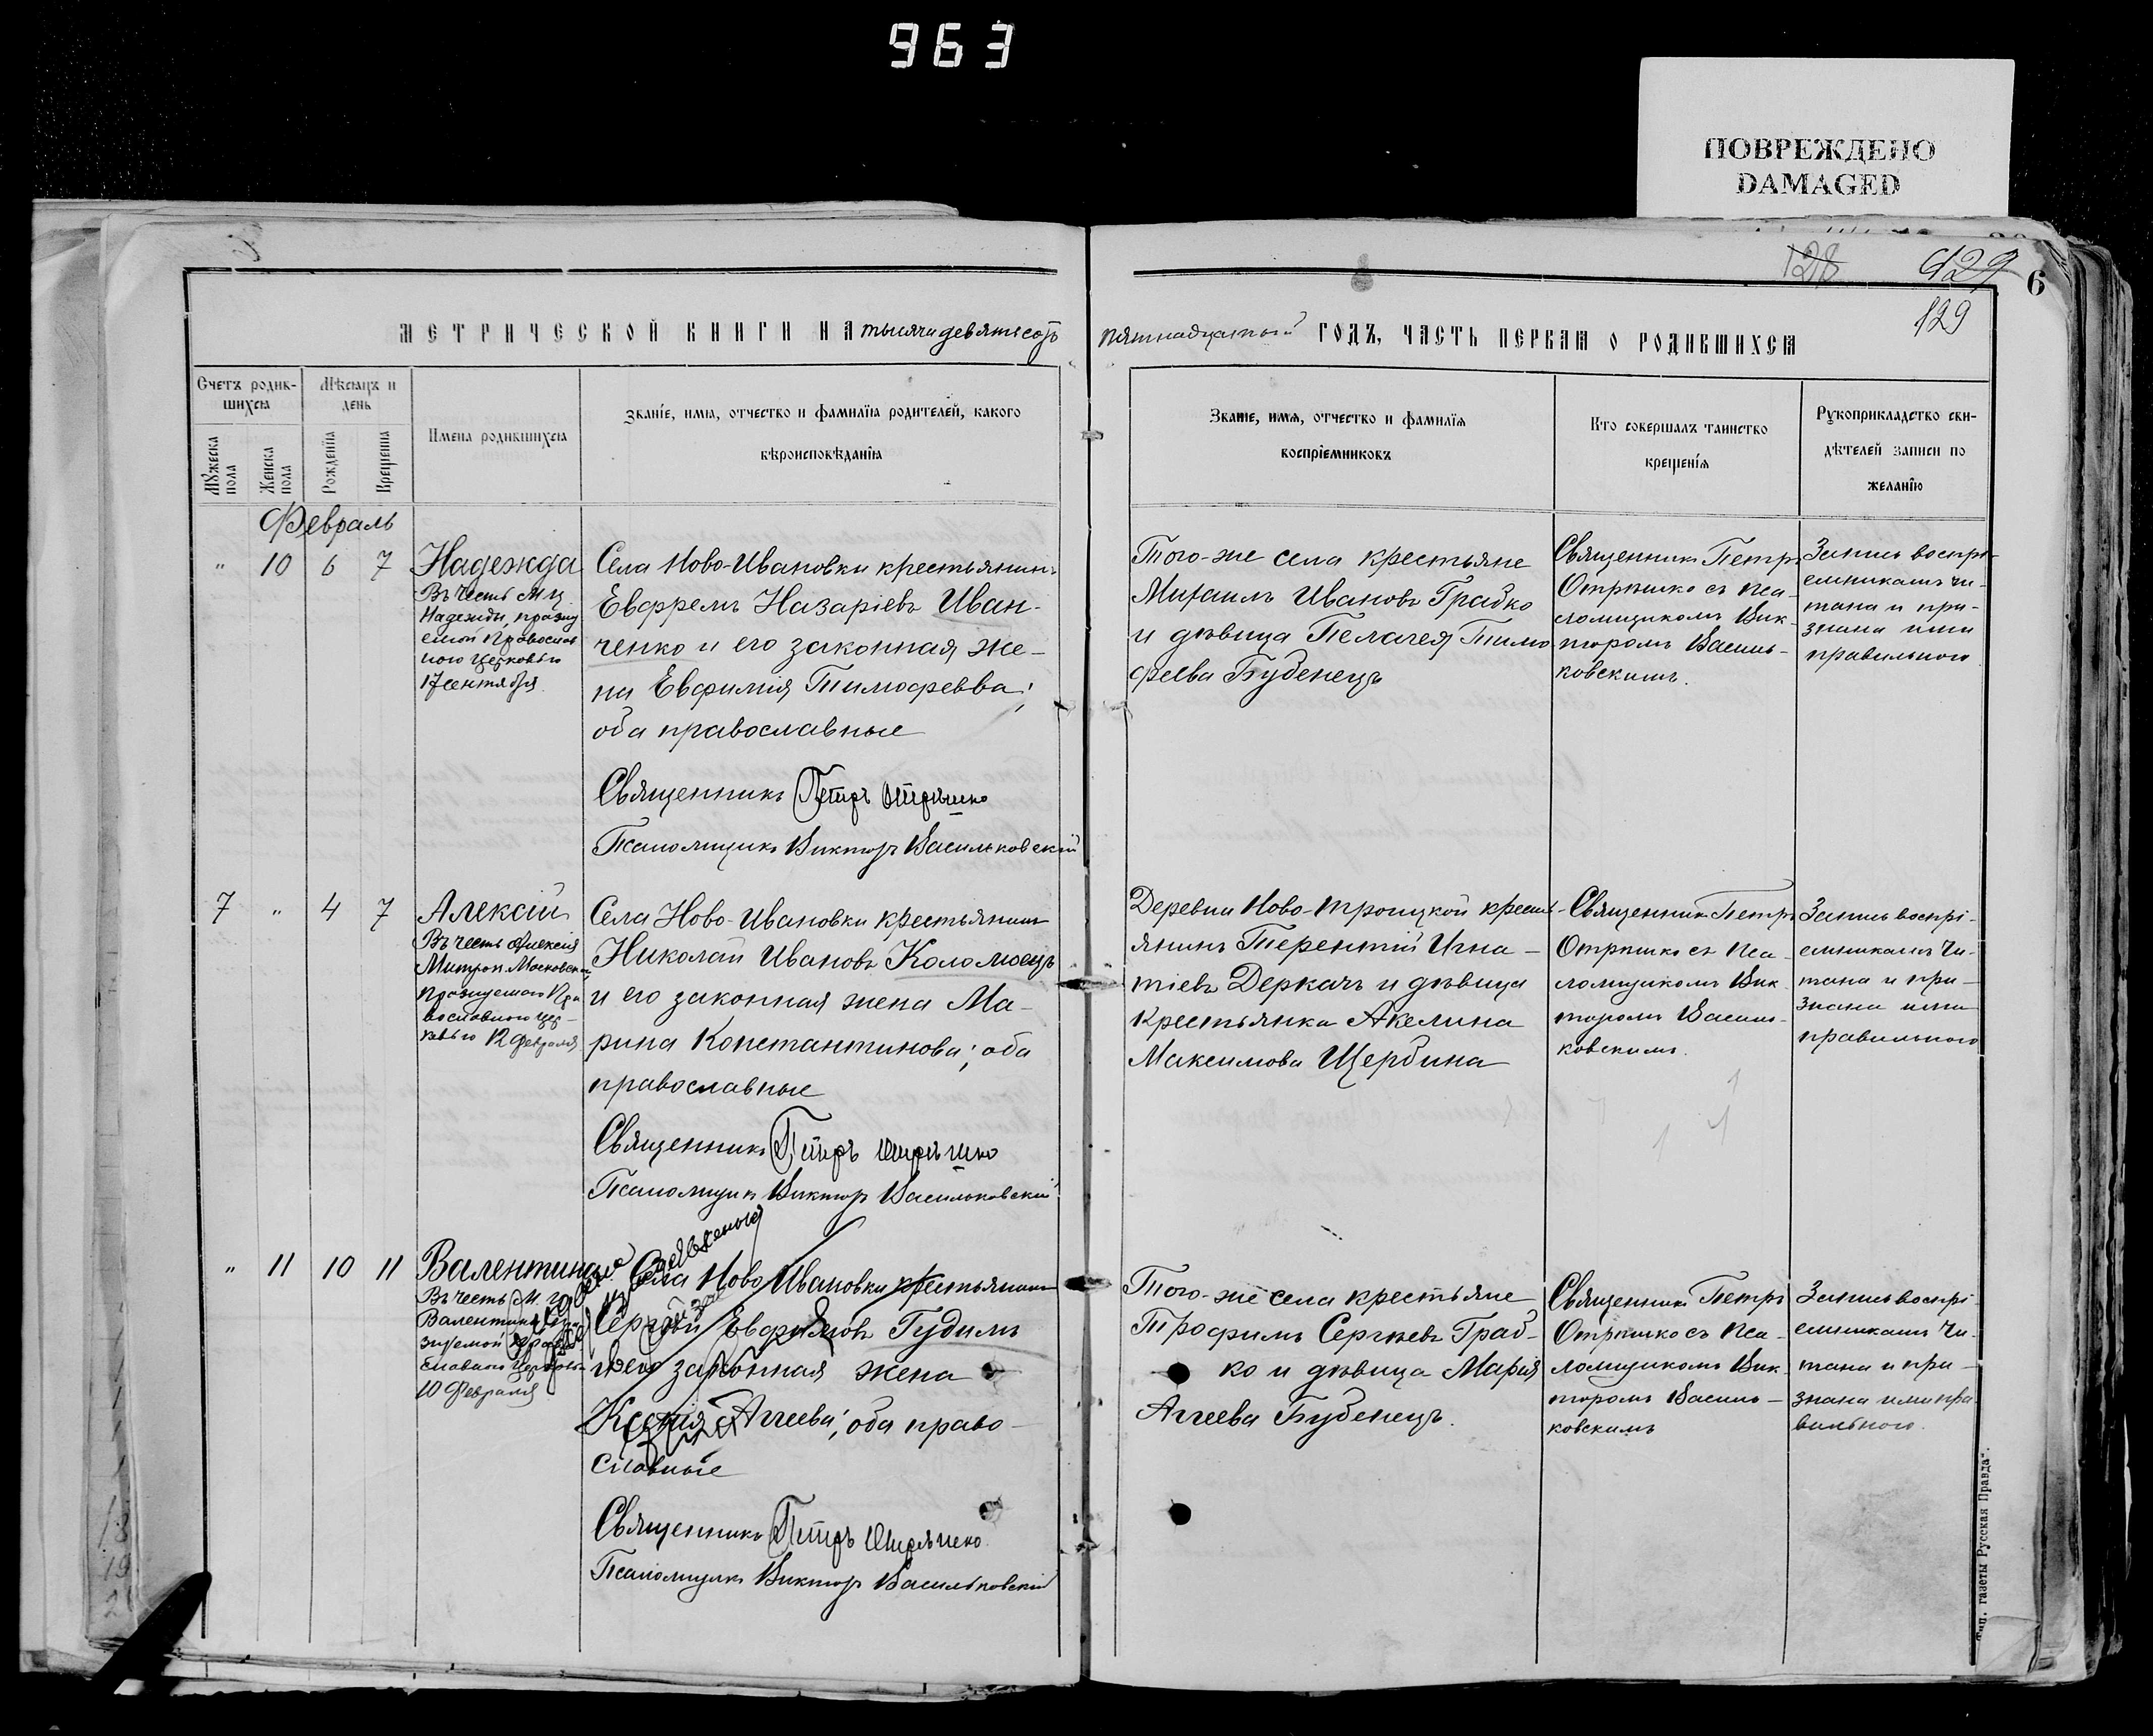 963
ПОВРЕЖДЕНО
DAMAGED
128
129
6
129
МЕТРИЧЕСКОЙ КНИГИ НА тысяча девятьсотъ
пятнадцатый ГОДЪ, ЧАСТЬ ПЕРВАЯ О РОДИВШИХСЯ
Счетъ родив-
шихся
Мѣсяцъ и
день
Мужеска
пола
Женска
пола
Рожденія
Крещенія
Имена родившихся
Званіе, имя, отчество и фамилія родителей, какого
вѣроисповѣданія
Званіе, имя, отчество и фамилія
воспріемниковъ
Кто совершалъ таинство
крещенія
Рукоприкладство сви-
дѣтелей записи по
желанію
Февраль
" 10 6 7
Надежда
Въ честь Мц
Надежды, празну
емой Православ
ною Церковью
17 сентября
Села Ново-Ивановки крестьянинъ
Евфремъ Назаріевъ Иван-
ченко и его законная же-
на Евфимія Тимофеева;
оба православные
Священникъ Петръ Отрѣшко
Псаломщикъ Викторъ Васильковскій
Того-же села крестьяне
Михаилъ Ивановъ Грабко
и дѣвица Пелагея Тимо
феева Бубенецъ
Священникъ Петръ
Отрѣшко съ Пса-
ломщикомъ Вик-
торомъ Василь-
ковскимъ.
Запись воспрі-
емникамъ чи-
тана и при-
знана ими
правильною
7 " 4 7
Алексій
Въ честь Алексія
Митроп. Московска
празнуемаго Пра
вославною Цер-
ковью 12 февраля
Села Ново-Ивановки крестьянинъ
Николай Ивановъ Коломоецъ
и его законная жена Ма-
рина Константинова; оба
православные
Священникъ Петръ Отрѣшко
Псаломщикъ Викторъ Васильковскій
Деревни Ново-Троицкой крест-
янинъ Терентій Игна-
тіевъ Деркачъ и дѣвица
крестьянка Акелина
Максимова Щербина
Священникъ Петръ
Отрѣшко съ Пса-
ломщикомъ Вик
торомъ Василь-
ковскимъ.
Запись воспрі-
емникамъ чи-
тана и при-
знана ими
правильною
" 11 10 11
Валентина
Въ честь М.
Валентины
славною Церковью
10 Февраля
Села Ново-Ивановки крестьянинъ
Сергѣй Евфимовъ Гудимъ
и его законная жена
Ксенія Аггеева; оба право-
славные
Священникъ Петръ Отрѣшко
Псаломщикъ Викторъ Васильковскій
Того-же села крестьяне
Трофимъ Сергѣевъ Граб-
ко и дѣвица Марія
Аггеева Бубенецъ.
Священникъ Петръ
Отрѣшко съ Пса-
ломщикомъ Вик-
торомъ Василь-
ковскимъ
Запись воспрі
емникамъ чи-
тана и при-
знана ими пра
вильною.
Тип. газеты Русская Правда".